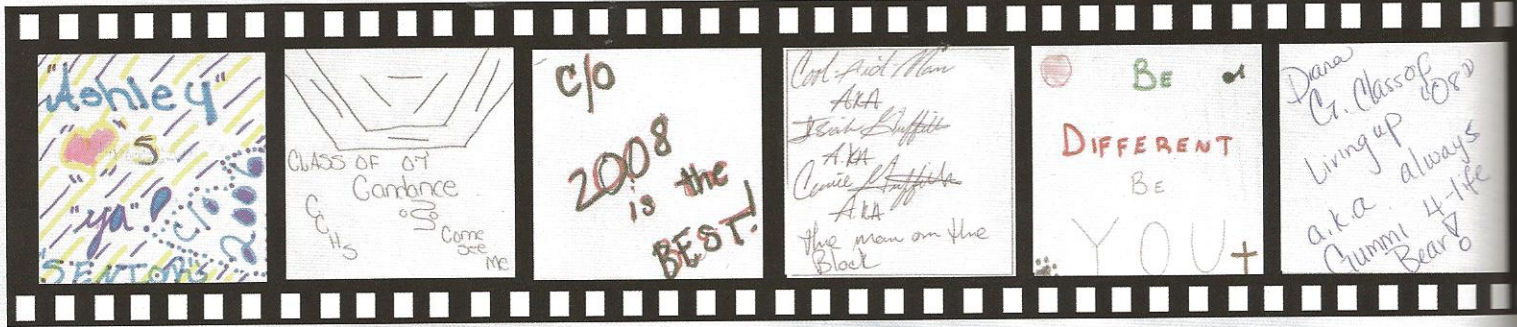 "Ashley"
"S
"ya"!
c/o 2008
"SENIORS"
CLASS OF 07
Candance
CCHS
Come
see
me
c/o
2008
is the
BEST!
Cool-Aid Man
AKA
AKA
AKA
the man on the
Block
BE
DIFFERENT
BE
YOU
Diana
G. Class of
"08"
Living up
always
a.k.a. 4-life
Gummi
Bear!